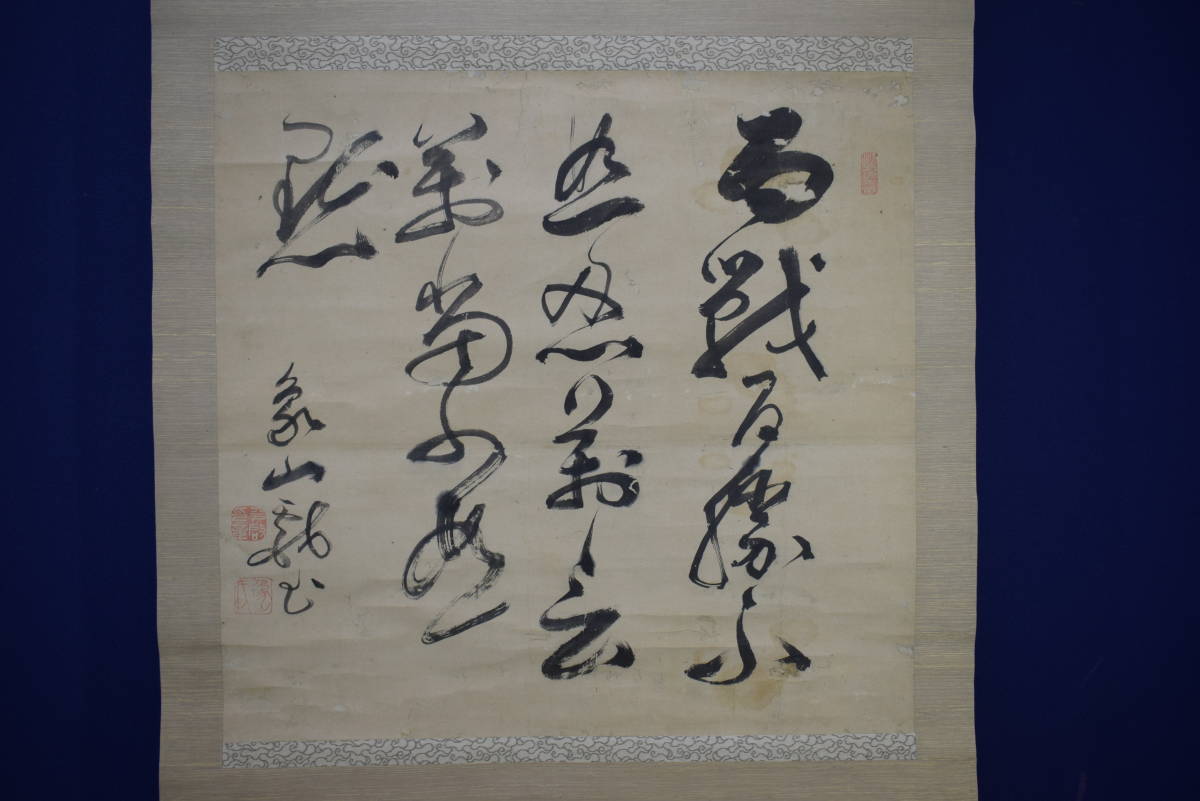 百戰百勝不
如一忍萬言
萬當不如一
黙
象山書